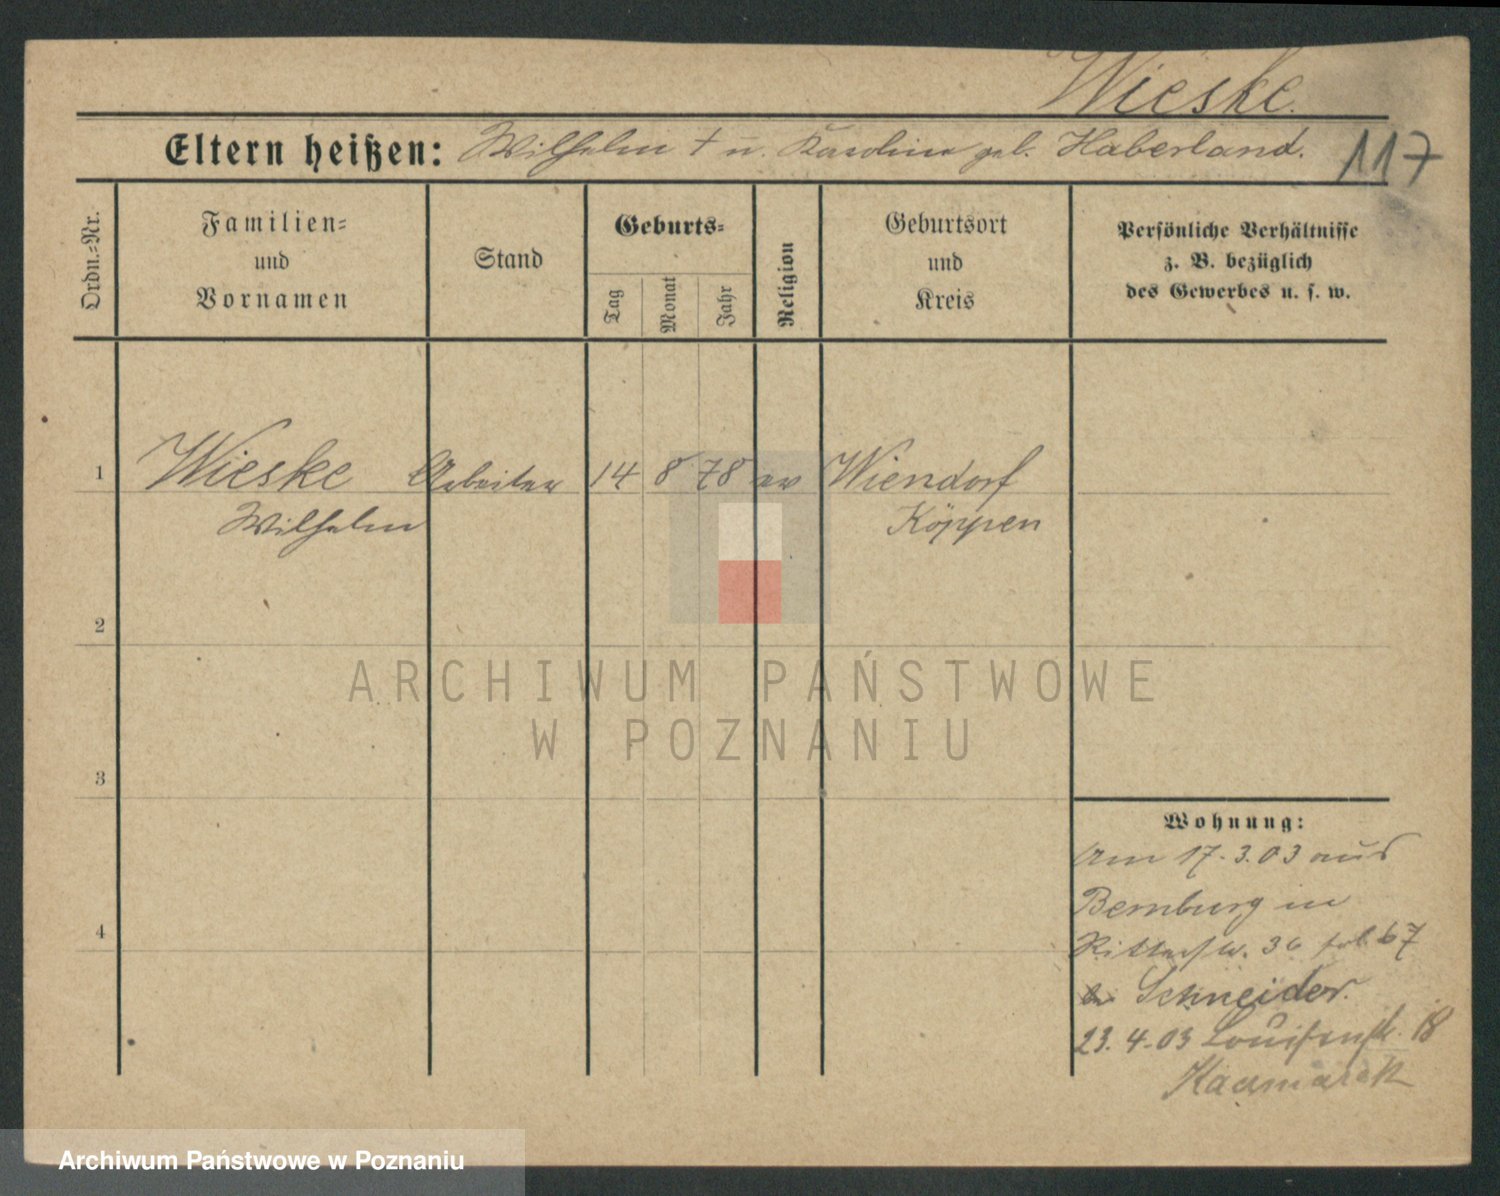 Wieske.
Eltern heißen: Wilhelm † u. Karoline geb. Haberland.
117
Ordn.-Nr.
Familien-
und
Vornamen
Stand
Geburts-
Tag
Monat
Jahr
Religion
Geburtsort
und
Kreis
Persönliche Verhältnisse
z. B. bezüglich
des Gewerbes u. s. w.
1 Wieske Arbeiter 14 8 78 ev Wiendorf
Wilhelm Köppen
2
ARCHIWUM PAŃSTWOWE
W POZNANIU
3
Wohnung:
Am 17.3.03 aus
Bernburg in
Ritterstr. 36 67
4
bei Schneider.
23.4.03 Louisenstr. 18
Kaczmarek
Archiwum Państwowe w Poznaniu